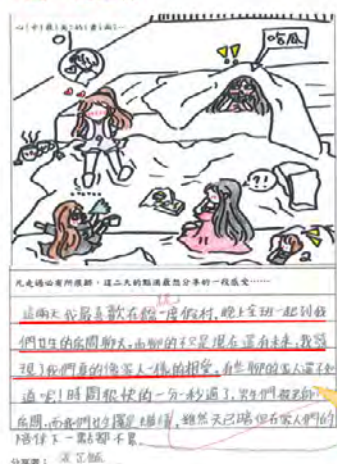 心中最美的畫面…
哈瓜
?!
凡走過必有所痕跡,這二天的點滴最想分享的一段感受……
這兩天我最喜歡在統一度假村,晚上全班一起到我
們女生的房間聊天,而聊的不只是現在還有未來,我發
現了我們真的像家人一樣的相愛,有些聊的家人還不知
道呢!時間很快的一分一秒過了,男生們都
房間,而我們,雖然天已暗但在家人們的
陪伴下一點都不累。
分享者: